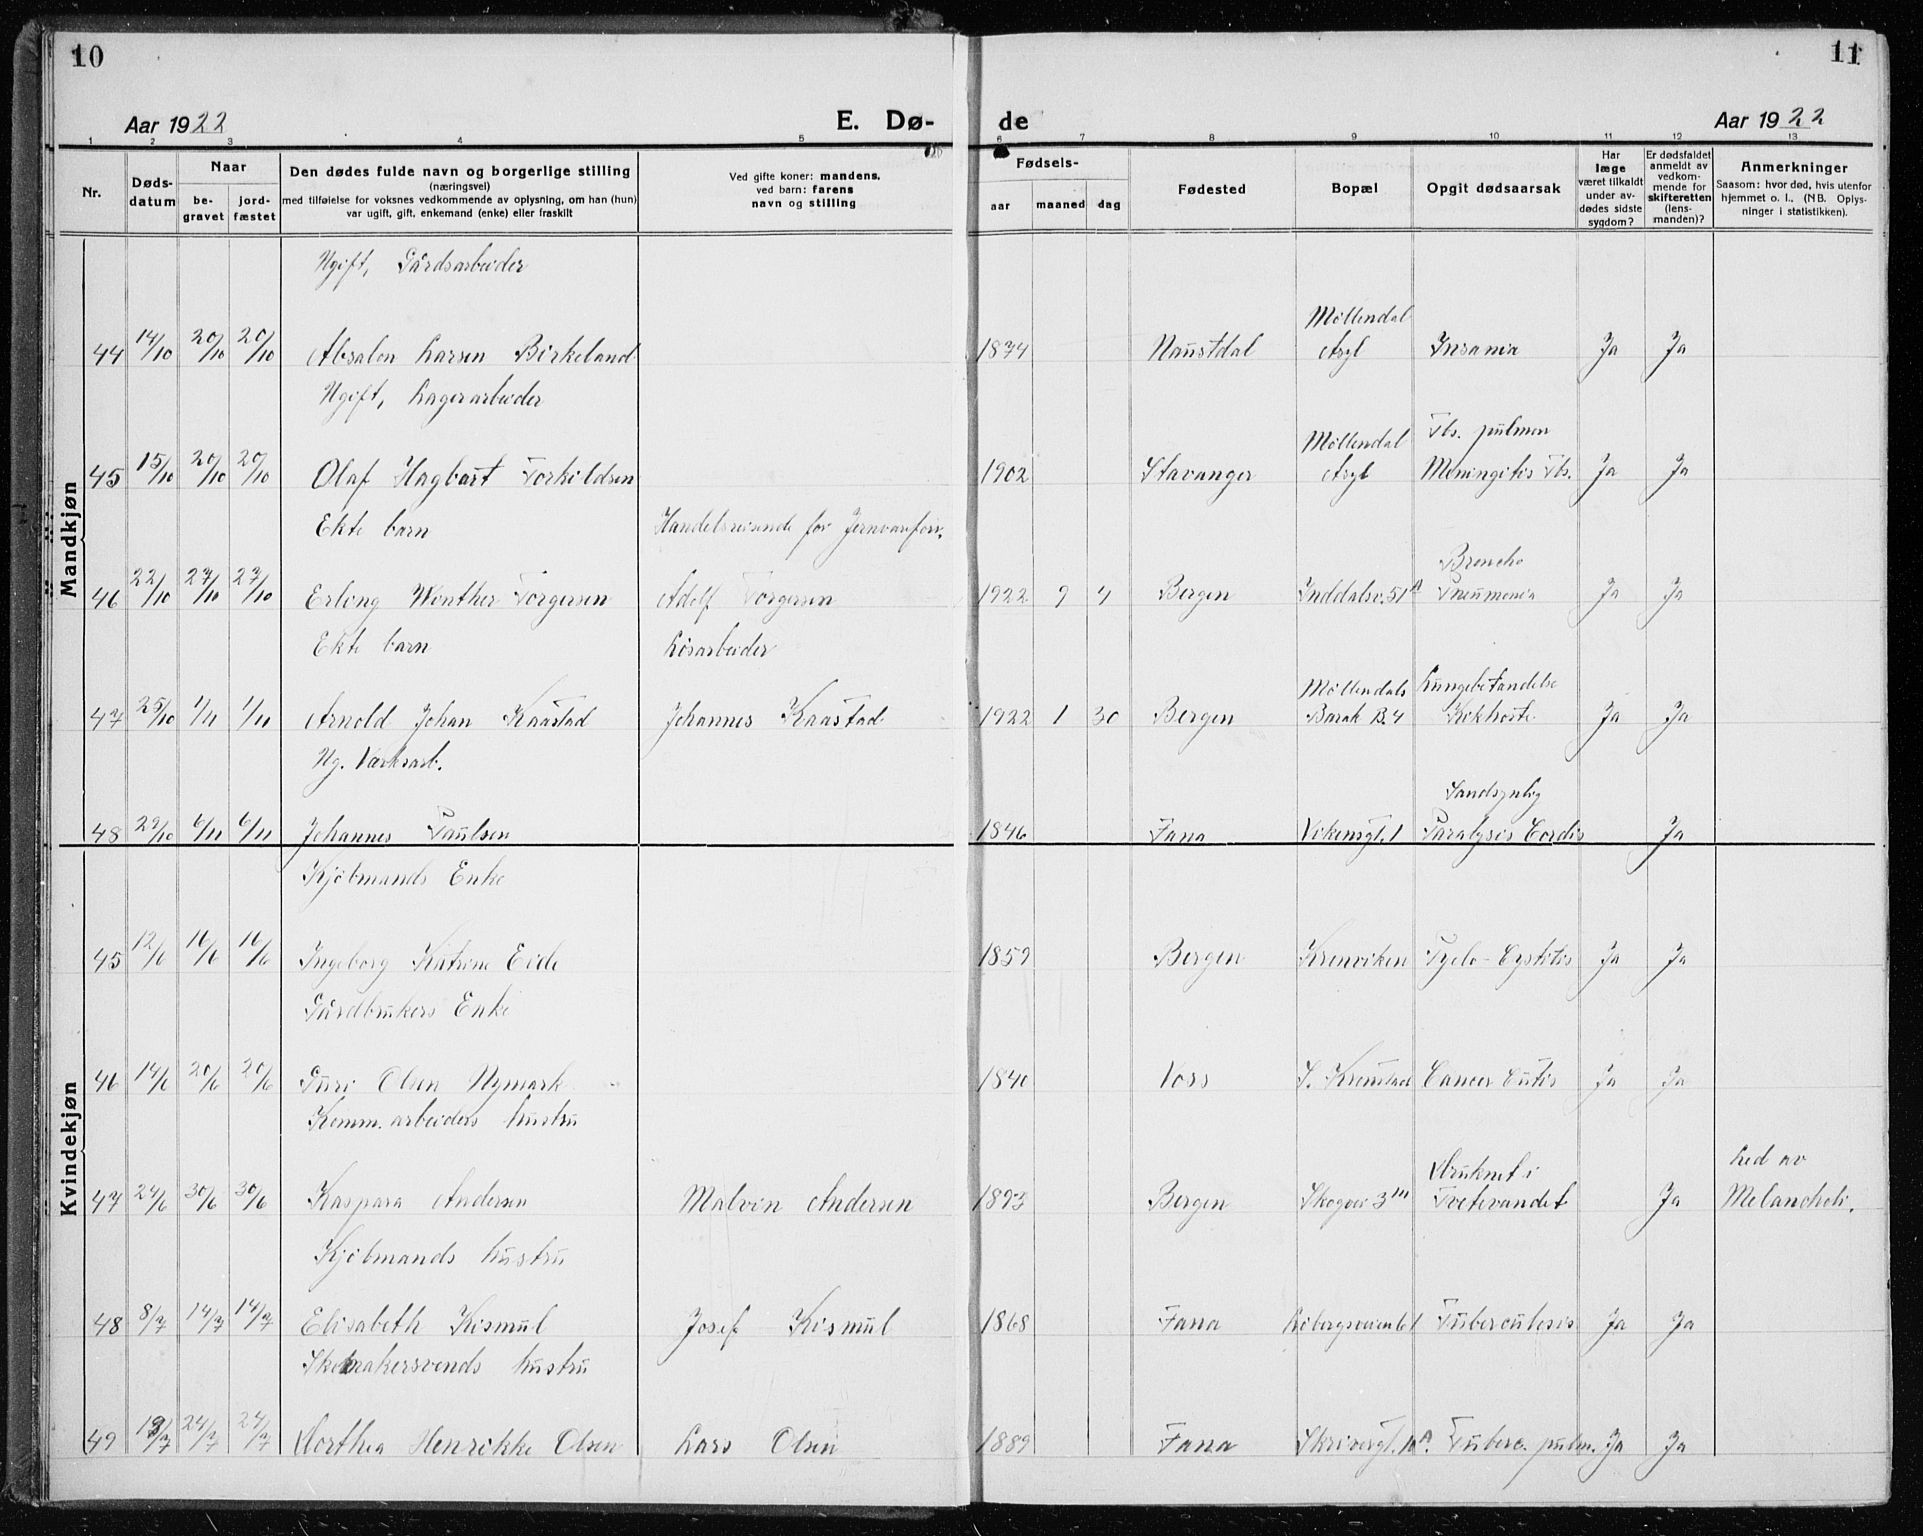 10
11
Aar 1922
E. Dø-
de
Aar 1922
1 2 3 4 5 6 7 8 9 10 11 12 13
Nr.
Døds-
datum
Naar
be-
gravet
jord-
fæstet
Den dødes fulde navn og borgerlige stilling
(næringsvei)
med tilføielse for voksnes vedkommende av oplysning, om han (hun)
var ugift, gift, enkemand (enke) eller fraskilt
Ved gifte koner: mandens,
ved barn: farens
navn og stilling
Fødsels-
aar maaned dag
Fødested
Bopæl
Opgit dødsaarsak
Har
læge
været tilkaldt
under av-
dødes sidste
sygdom?
Er dødsfaldet
anmeldt av
vedkom-
mende for
skifteretten
(lens-
manden)?
Anmerkninger
Saasom: hvor død, hvis utenfor
hjemmet o. l.. (NB. Oplys-
ninger i statistikken).
Mandkjøn
Ugift, Gårdsarbeider
Møllendal
44 14/10 20/10 20/10 Absalon Larsen Birkeland 1874 Naustdal Asyl Insania Ja Ja
Ugift, Lagerarbeider
Møllendal Tbs. pulmon
45 15/10 20/10 20/10 Olaf Hagbart Torkildsen 1902 Stavanger Asyl Meningitis Tbs. Ja Ja
Ekte barn Handelsreisende for Jernvareforr.
Broncho
46 22/10 27/10 27/10 Erling Winther Torgersen Adolf Torgersen 1922 9 4 Bergen Inddalsv. 51 A Pneumonia Ja Ja
Ekte barn Løsarbeider
Møllendals Lungebetændelse
47 25/10 1/11 1/11 Arnold Johan Kaastad Johannes Kaastad 1922 1 30 Bergen Barak B. 4 Kikhoste Ja Ja
Ug. Værksarb.
Sandsynlig
48 29/10 6/11 6/11 Johannes Paulsen 1846 Fana Vikensgt. 1 Paralysis Cordis Ja
Kvindekjøn
Kjøbmands Enke
45 12/6 16/6 16/6 Ingeborg Katrine Eide 1859 Bergen Kronviken Pyelo-Cystitis Ja Ja
Gårdbrukers Enke
46 14/6 20/6 20/6 Guri Olsen Nymark 1840 Voss S. Kronstad Cancer Cutis Ja Ja
Komm. arbeiders hustru
Druknet i Led av
47 24/6 30/6 30/6 Kaspara Andersen Malvin Andersen 1893 Bergen Skogvei 3 Tveitevandet Ja Melancholi.
Kjøbmands hustru
48 8/7 14/7 14/7 Elisabeth Kismul Josef Kismul 1868 Fana Løbergsveien 61 Tuberculosis Ja Ja
Skomakersvends hustru
49 18/7 24/7 24/7 Dorthea Henrikke Olsen Lars Olsen 1889 Fana Skrivergt. 10 A. Tuberc. pulm. Ja Ja